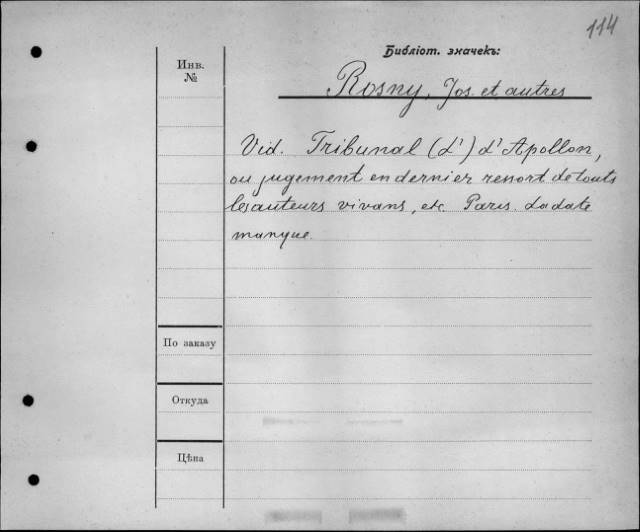 114
Библіот. значекъ:
Инв.
№
Rosny, Jos. et autres
Vid. Tribunal (L') d'Apollon,
ou jugement en dernier ressort de touts
les auteurs vivans, etc. Paris. La date
manque.
По заказу
Откуда
Цѣна